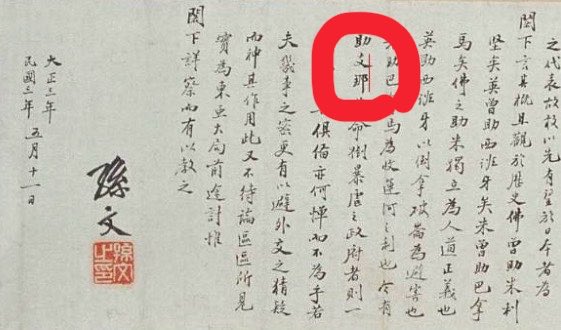 之代表故敢以先有望於日本者為
閣下言其概且觀於歷史佛曾助米利
堅矣英曾助西班牙矣米曾助巴拿
馬矣佛之助米獨立為人道正義也
英助西班牙以倒拿破崙為避害也
助巴馬為收運河之利也今有
助支那命倒暴虐之政府者則一
俱備亦何憚而不為乎若
夫幾事之密更有以避外交之猜疑
而神其作用此又不待論區區所見
實為東亞大局前途計惟
閣下詳察而有以教之
孫文
孫文之印
大正三年
民國三年 五月十一日